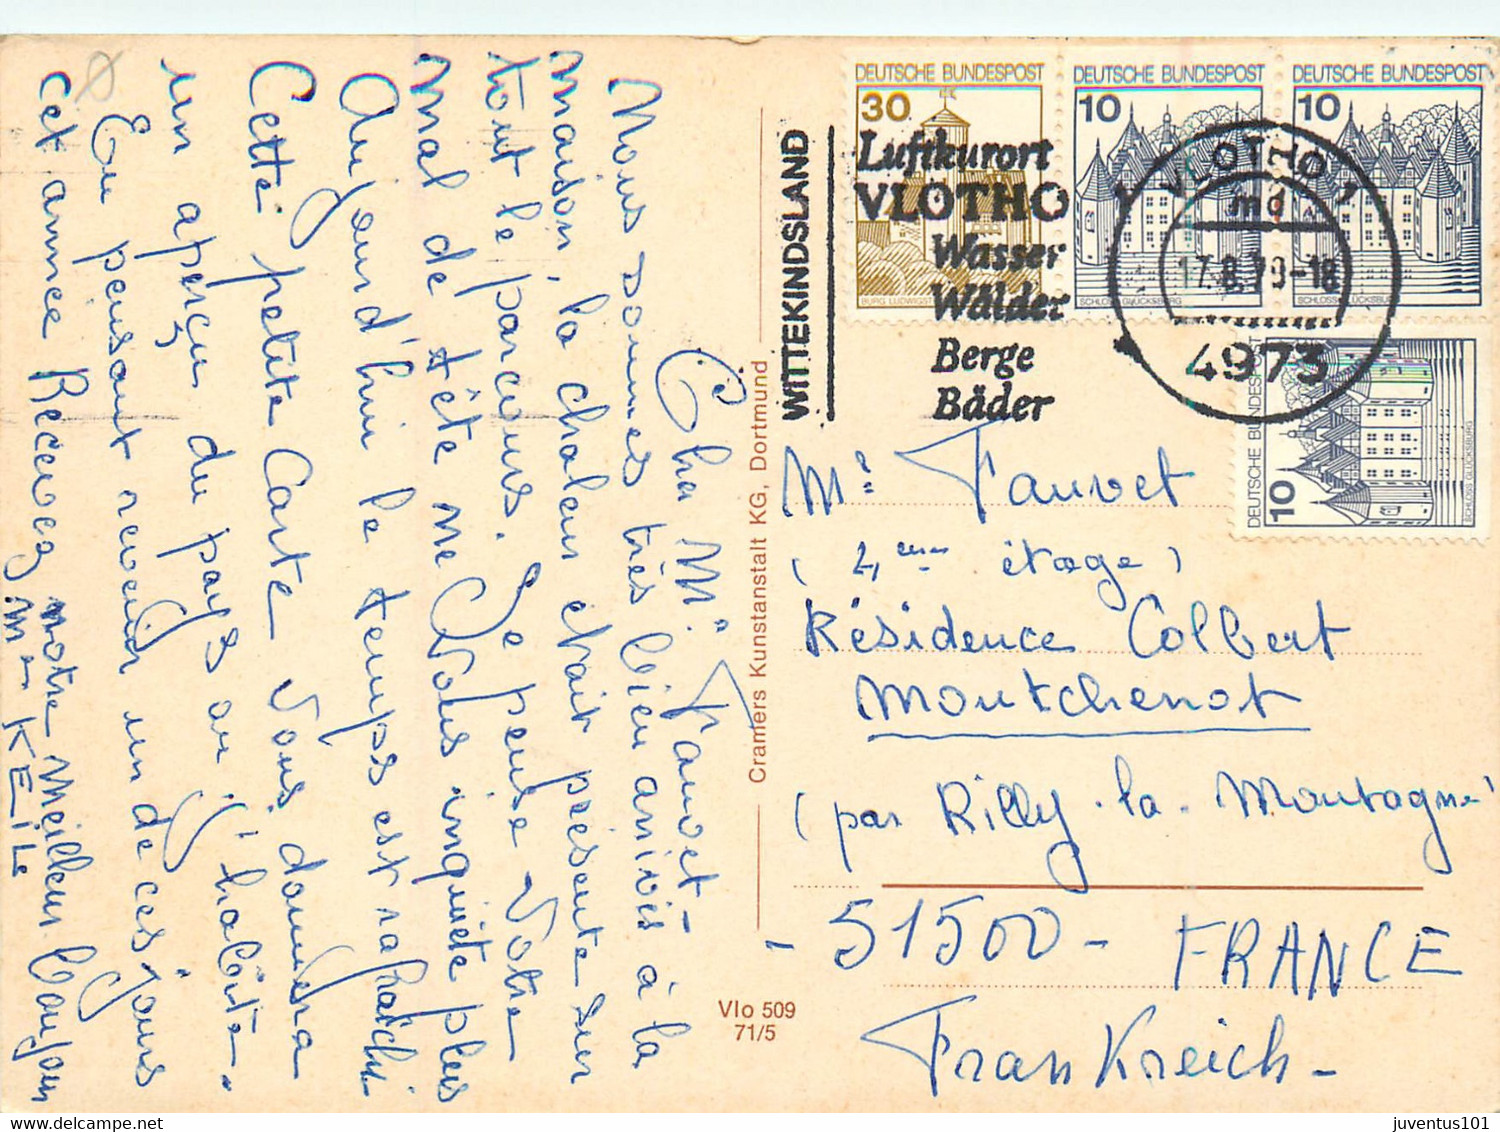 Cher Mr. Fauvet-
Nous sommes très bien arrivés à la
maison, la chaleur était présente sur
tout le parcours. Je pense votre
mal de tête ne vous inquiète plus
Aujourd'hui le temps est rafraichi
Cette petite Carte vous donnera
un aperçu du pays ou j'habite.
En pensant revenir un de ces jours
cet année Recevez notre meilleur Bonjour
Mr KEILE
Cramers Kunstanstalt KG, Dortmund
Vlo 509
71/5
DEUTSCHE BUNDESPOST
30
BURG LUDWIGST
DEUTSCHE BUNDESPOST
10
SCHLOSS GLÜCKSBURG
DEUTSCHE BUNDESPOST
10
SCHLOSS GLÜCKSBURG
DEUTSCHE BUNDESPOST
10
SCHLOSS GLÜCKSBURG
WITTEKINDSLAND
Luftkurort
VLOTHO
Wasser
Wälder
Berge
Bäder
VLOTHO 1
md
17.8.79-18
4973
Mr Fauvet
(4ème étage)
Résidence Colbert
Montchenot
(par Rilly-la-Montagne)
- 51500 - FRANCE
Frankreich-
juventus101